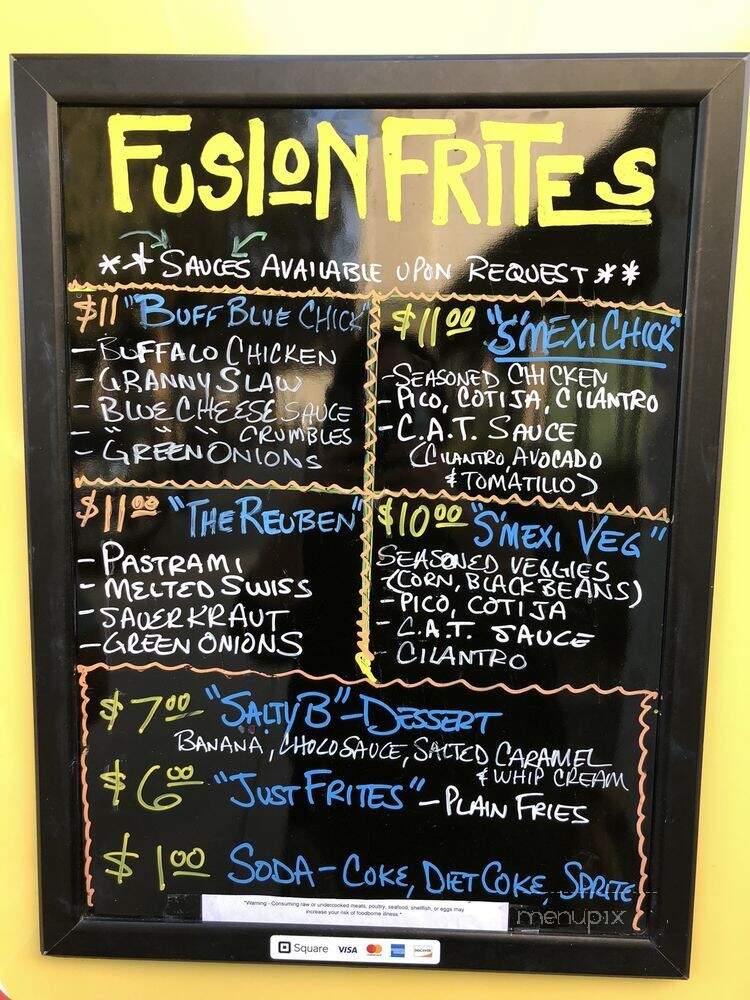 FUSION FRITES
** SAUCES AVAILABLE UPON REQUEST **
$11 "BUFF BLUE CHICK"
- BUFFALO CHICKEN
- GRANNY SLAW
- BLUE CHEESE SAUCE
- " " " CRUMBLES
- GREEN ONIONS
$11.00 "S'MEXI CHICK"
- SEASONED CHICKEN
- PICO, COTIJA, CILANTRO
- C.A.T. SAUCE
(CILANTRO, AVOCADO
& TOMATILLO)
$11.00 "THE REUBEN"
- PASTRAMI
- MELTED SWISS
- SAUERKRAUT
- GREEN ONIONS
$10.00 "S'MEXI VEG"
SEASONED VEGGIES
(CORN, BLACK BEANS)
- PICO, COTIJA
- C.A.T. SAUCE
- CILANTRO
$7.00 "SALTY B" - DESSERT
BANANA, CHOCO SAUCE, SALTED CARAMEL
& WHIP CREAM
$6.00 "JUST FRITES" - PLAIN FRIES
$1.00 SODA - COKE, DIET COKE, SPRITE
"Warning - Consuming raw or undercooked meats, poultry, seafood, shellfish, or eggs may
increase your risk of foodborne illness."
menupix
Square VISA MasterCard AMERICAN EXPRESS DISCOVER